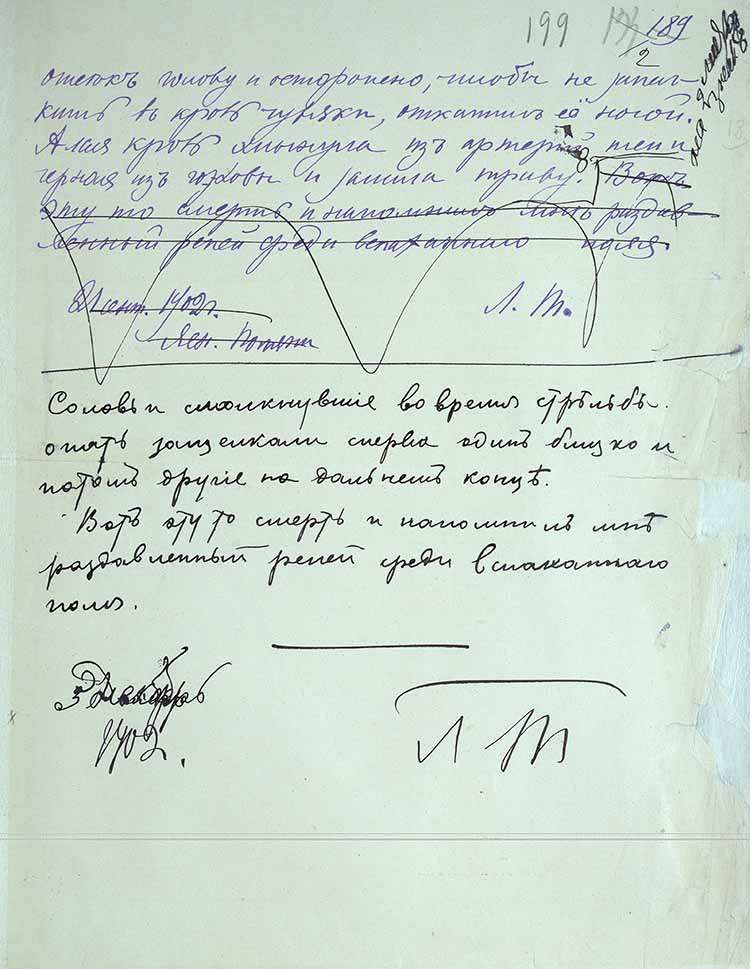 199 189
2
отсекъ голову и осторожно, чтобы не запач-
кать въ кровь чувяки, откатилъ её ногой.
Алая кровь хлынула изъ артерій шеи и
черная изъ головы и залила траву. Вотъ
эту то смерть и напомнилъ мнѣ раздав-
ленный репей среди вспаханнаго поля.
сент. 1902 г. Л. Т.
Ясн. Поляна
Соловьи смолкнувшіе во время стрѣльбы
опять защелкали сперва одинъ близко и
потомъ другіе на дальнемъ концѣ.
Вотъ эту то смерть и напомнилъ мнѣ
раздавленный репей среди вспаханнаго
поля.
Декабрь
1902. Л Т